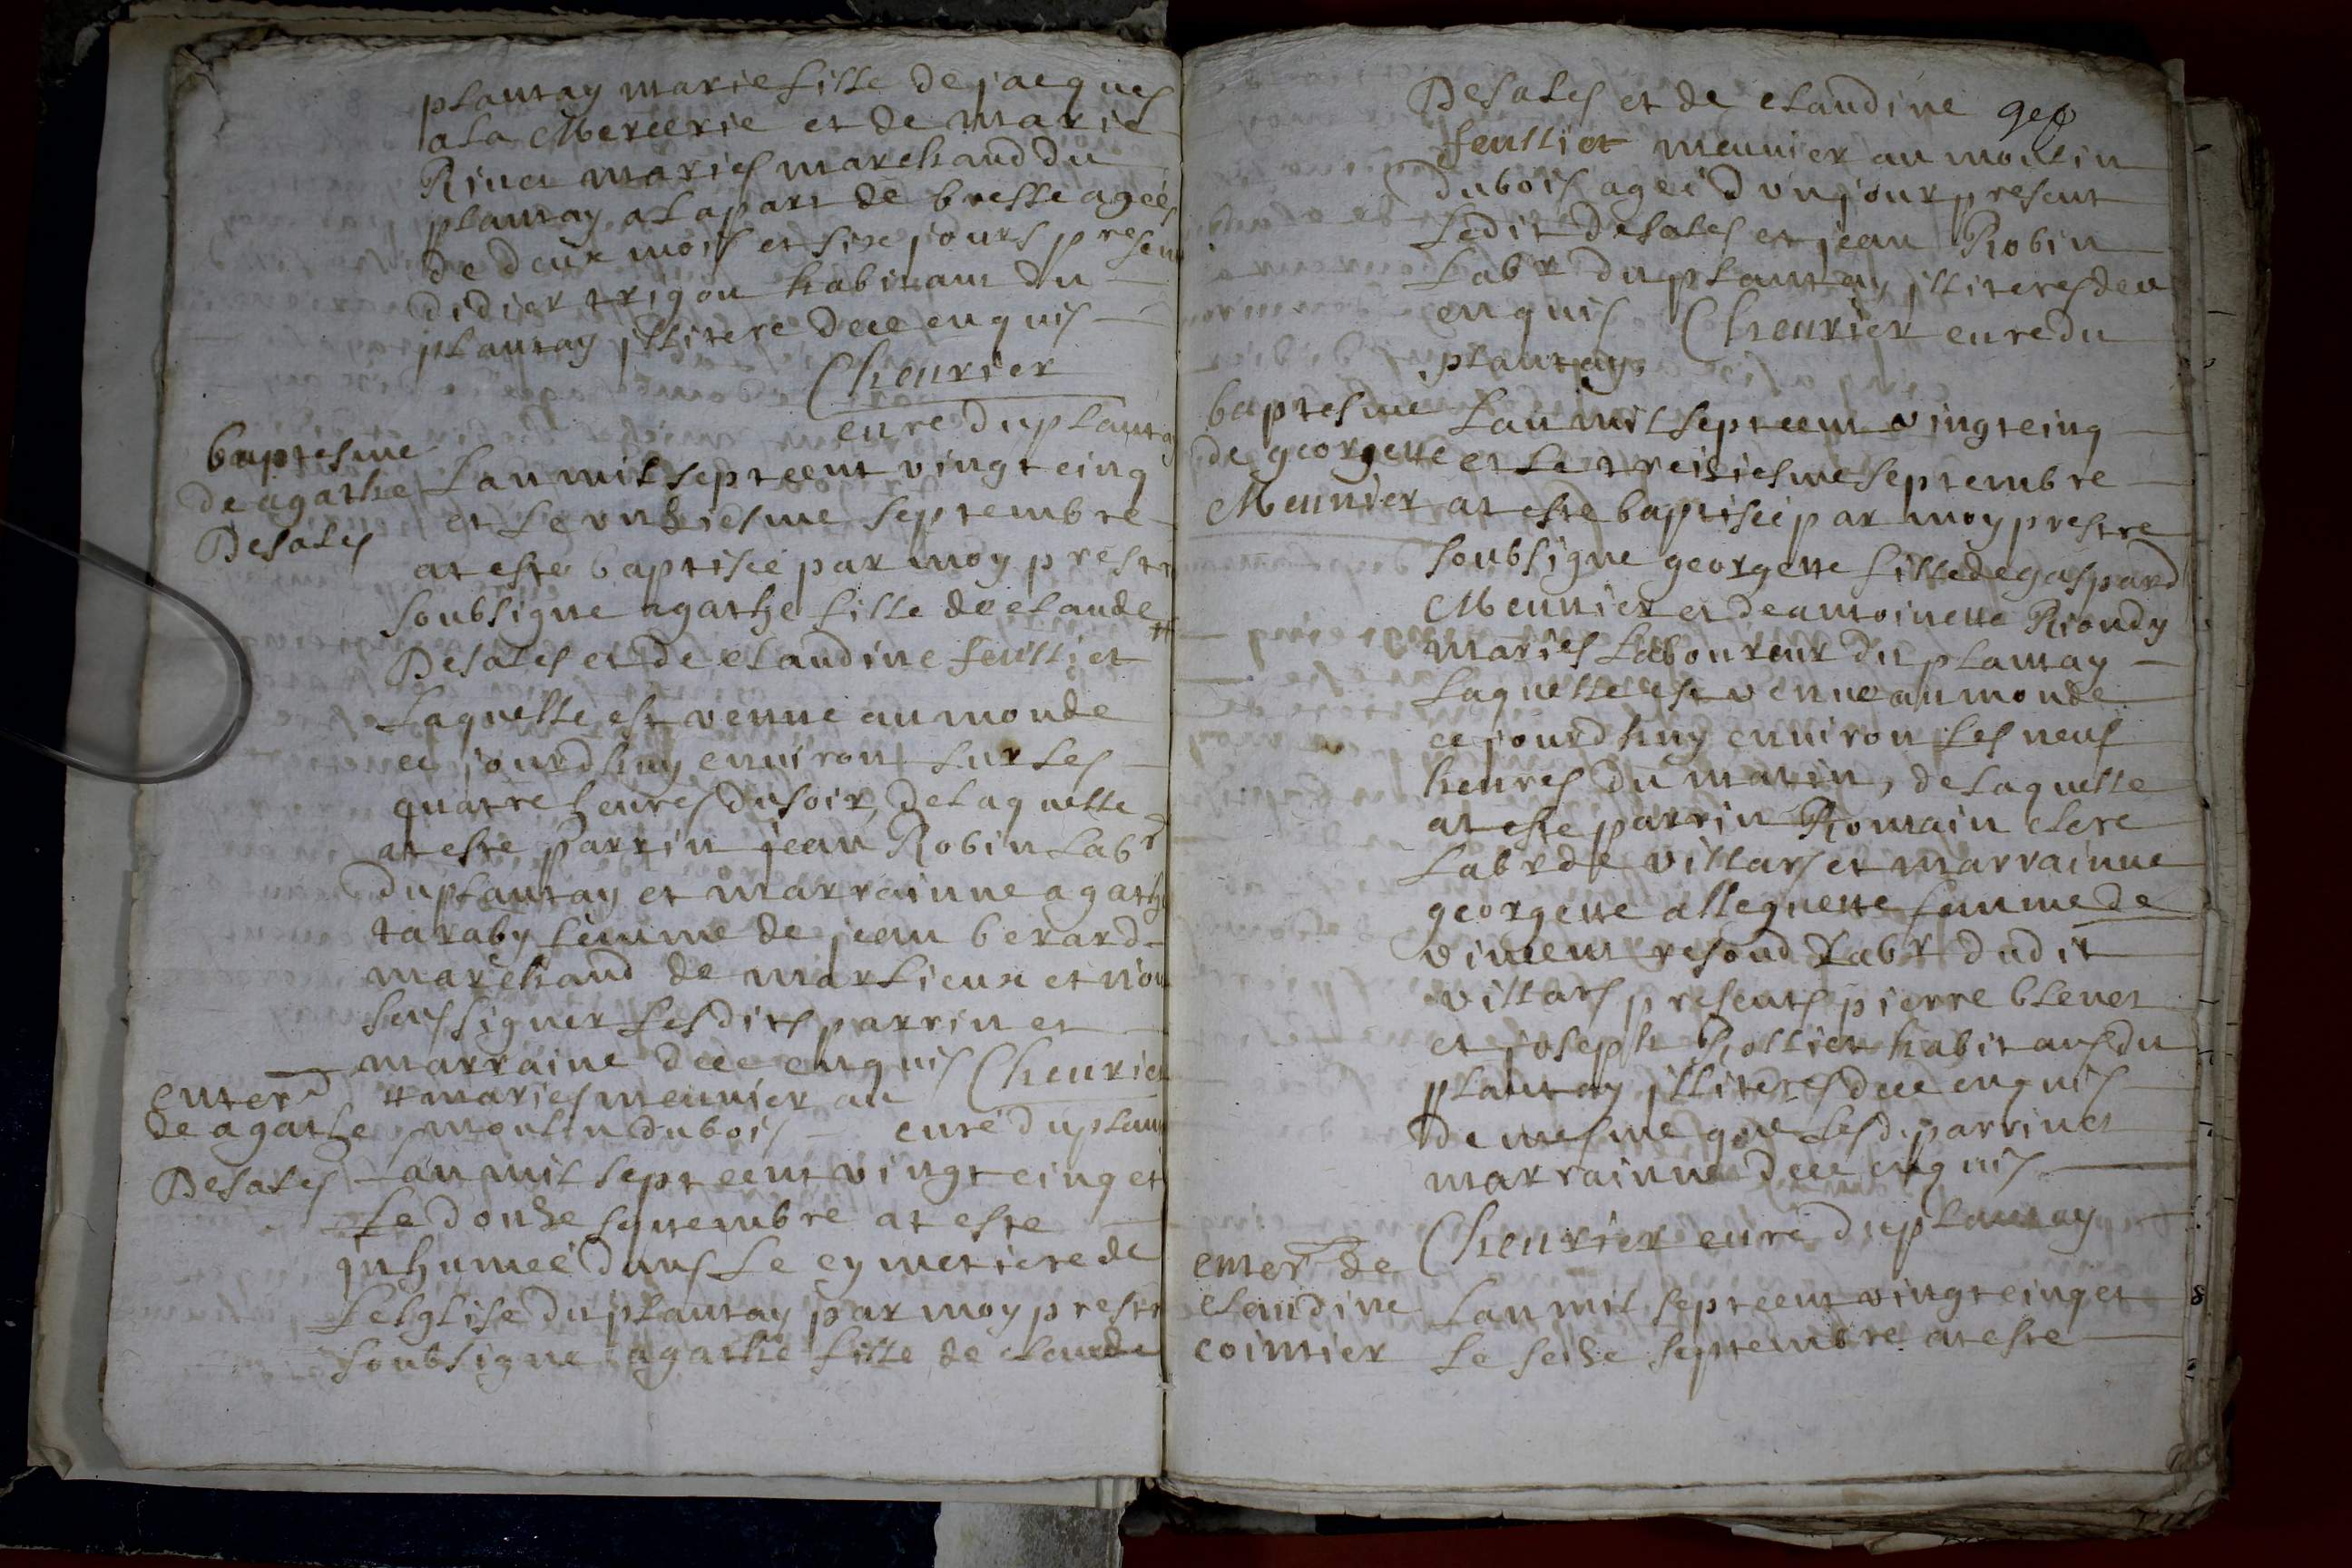 plantay marie fille de jacques
ala Mercerie et de marie
Rivet mariés marchand du
plantay a la part de bresse ageé
de deux mois et six jours present
didier trigon habitant du
plantay illiteré dece enquis
Chevrier
curé du plantay
baptesme
de agathe
Desales
Lan mil sept cent vingt cinq
et le vnziesme septembre
at esté baptisée par moy prestre
soubsigne agathe fille de claude
Desales et de claudine feuilliet #
Laquelle est venue au monde
ce jourdhuy environ sur les
quatre heures du soir, de laquelle
at esté parrin jean Robin Labr
du plantay et marrainne agathe
taraby femme de jean berard
marchand de marlieux et n'ont
seu signer lesdits parrin et
marraine dece enquis Chevrier
# mariés meunier au
moulin du bois curé du plantay
enterr
de agathe
Desales
Lan mil sept cent vingt cinq et
Le douze septembre at esté
inhumeé dans le cymetiere de
Lesglise du plantay par moy prestre
soubsigne agathe fille de claude
Desales et de claudine
feuilliet meunier au moulin
du bois ageé d vn jour present
Ledit desales et jean Robin
Labr du plantay illiterés de ce
enquis Chevrier curé du
plantay
baptesme
de georgette
Meunier
Lan mil sept cent vingt cinq
et le treiziesme septembre
at esté baptisée par moy prestre
soubsigne georgette fille de gaspard
Meunier et de antoinette Riondy
mariés laboureur du plantay
Laquelle est venue au monde
ce jourdhuy environ les neuf
heures du matin, de laquelle
at esté parrin Romain clere
Labr de villars et marrainne
georgette alleguette femme de
vincent refond Labr dudit
villars presents pierre blenet
et joseph Rollier habitans du
plantay illiterés dece enquis
de mesme que lesd. parrin et
marrainne dece enquis
Chevrier curé du plantay
enterr de
claudine
cointier
Lan mil sept cent vingt cinq et
Le seize septembre at esté